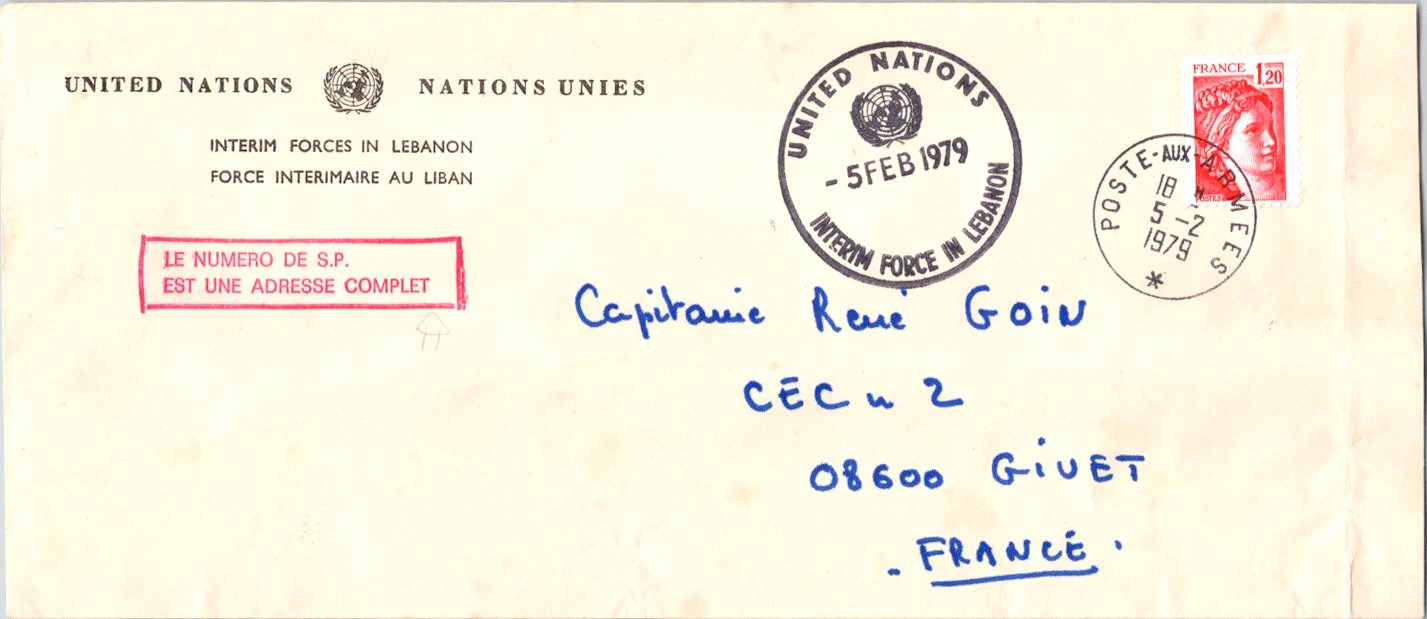 UNITED NATIONS NATIONS UNIES
INTERIM FORCES IN LEBANON
FORCE INTERIMAIRE AU LIBAN
LE NUMERO DE S.P.
EST UNE ADRESSE COMPLET
UNITED NATIONS
- 5 FEB 1979
INTERIM FORCE IN LEBANON
FRANCE 1,20
POSTES
POSTE-AUX-ARMEES
18 H
5 -2
1979
*
Capitanie René GOIN
CEC n 2
08600 GIVET
- FRANCE.